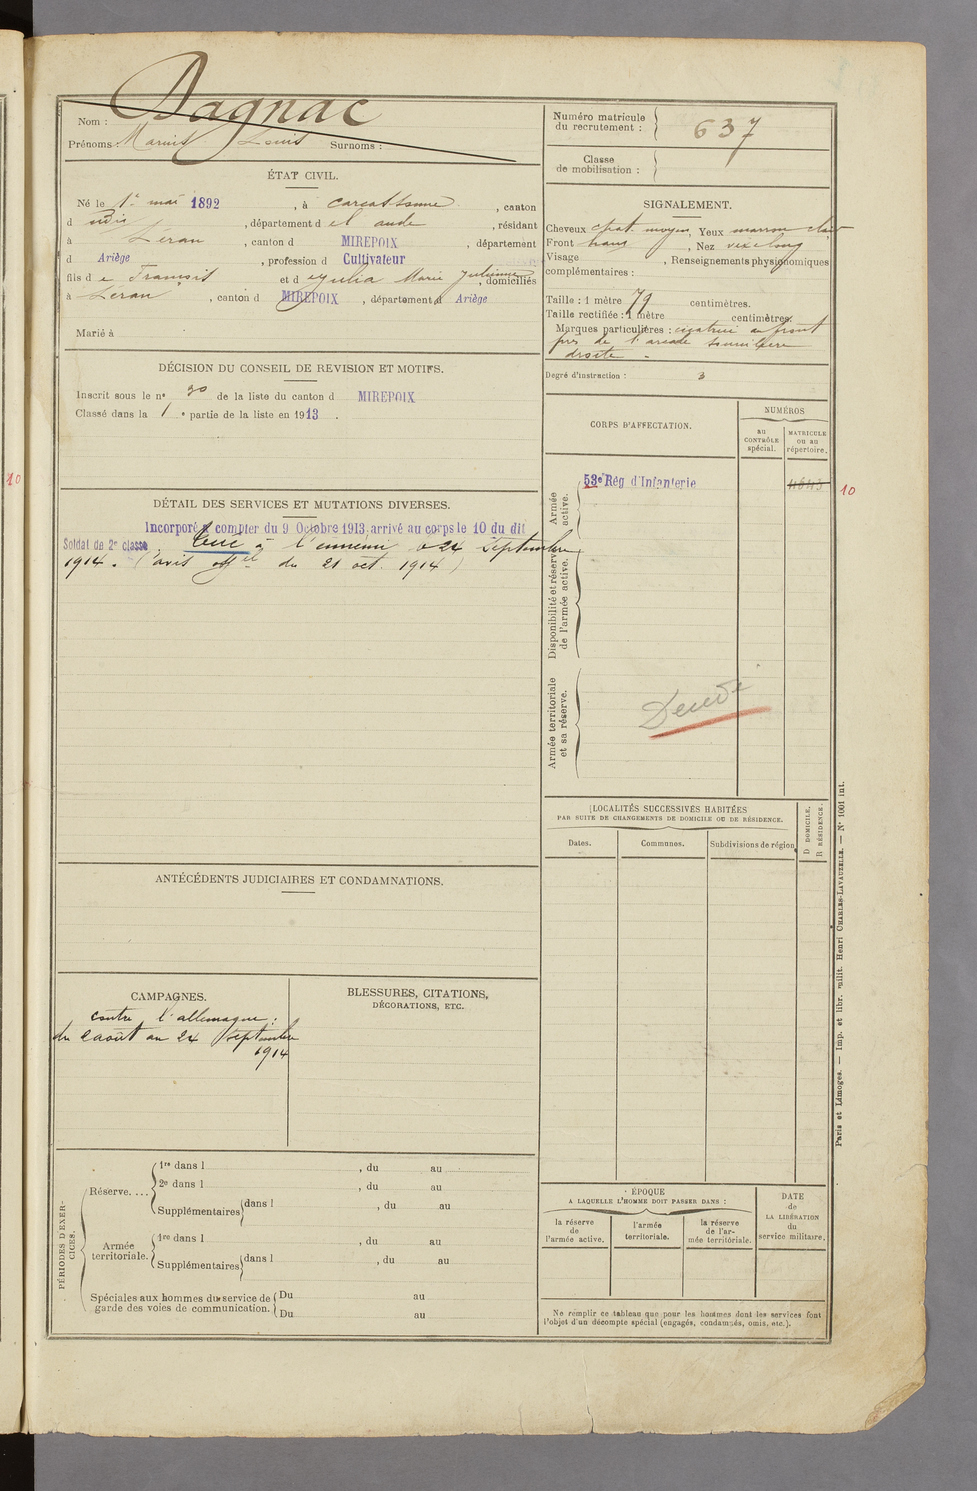 Nom : Dagnac
Prénoms : Louis Surnoms :
Numéro matricule du recrutement : 637
Classe de mobilisation :
ÉTAT CIVIL.
Né le 1er mai 1892, à Carcassonne, canton
d udis, département d el aude, résidant
à Léran, canton d MIREPOIX, département
d Ariège, profession d Cultivateur
fils de François et d Julia Marie, domiciliés
à Léran, canton d MIREPOIX, département d Ariège
Marié à
SIGNALEMENT.
Cheveux chat. moyen, Yeux marron clair
Front haut, Nez vexe long
Visage , Renseignements physionomiques
complémentaires :
Taille : 1 mètre 79 centimètres.
Taille rectifiée : 1 mètre centimètres.
Marques particulières : cicatrice au front
près de l'arcade sourcilière
droite.
Degré d'instruction : 3
DÉCISION DU CONSEIL DE REVISION ET MOTIFS.
Inscrit sous le n° 30 de la liste du canton d MIREPOIX
Classé dans la 1e partie de la liste en 1913.
CORPS D'AFFECTATION.
NUMÉROS
au CONTRÔLE spécial.
MATRICULE ou au répertoire.
Armée active.
53e Rég d'Infanterie
10
10
Disponibilité et réserve de l'armée active.
Armée territoriale et sa réserve.
DÉTAIL DES SERVICES ET MUTATIONS DIVERSES.
Incorporé à compter du 9 Octobre 1913 arrivé au corps le 10 du dit
Soldat de 2e classe Tué à l'ennemi le 24 Septembre
1914. (avis offel du 21 oct. 1914)
LOCALITÉS SUCCESSIVES HABITÉES
PAR SUITE DE CHANGEMENTS DE DOMICILE OU DE RÉSIDENCE.
Dates. Communes. Subdivisions de région.
D DOMICILE.
R RÉSIDENCE.
ANTÉCÉDENTS JUDICIAIRES ET CONDAMNATIONS.
CAMPAGNES.
contre l'allemagne :
du 2 août au 24 Septembre
1914
BLESSURES, CITATIONS,
DÉCORATIONS, ETC.
PÉRIODES D'EXERCICES.
Réserve....
1re dans l , du au
2e dans l , du au
Supplémentaires dans l , du au
Armée territoriale.
1re dans l , du au
Supplémentaires dans l , du au
Spéciales aux hommes du service de garde des voies de communication.
Du au
Du au
ÉPOQUE
A LAQUELLE L'HOMME DOIT PASSER DANS :
la réserve de l'armée active.
l'armée territoriale.
la réserve de l'armée territoriale.
DATE de LA LIBÉRATION du service militaire.
Ne remplir ce tableau que pour les hommes dont les services font
l'objet d'un décompte spécial (engagés, condamnés, omis, etc.).
Paris et Limoges. — Imp. et libr. milit. Henri CHARLES-LAVAUZELLE. — N° 1001 int.